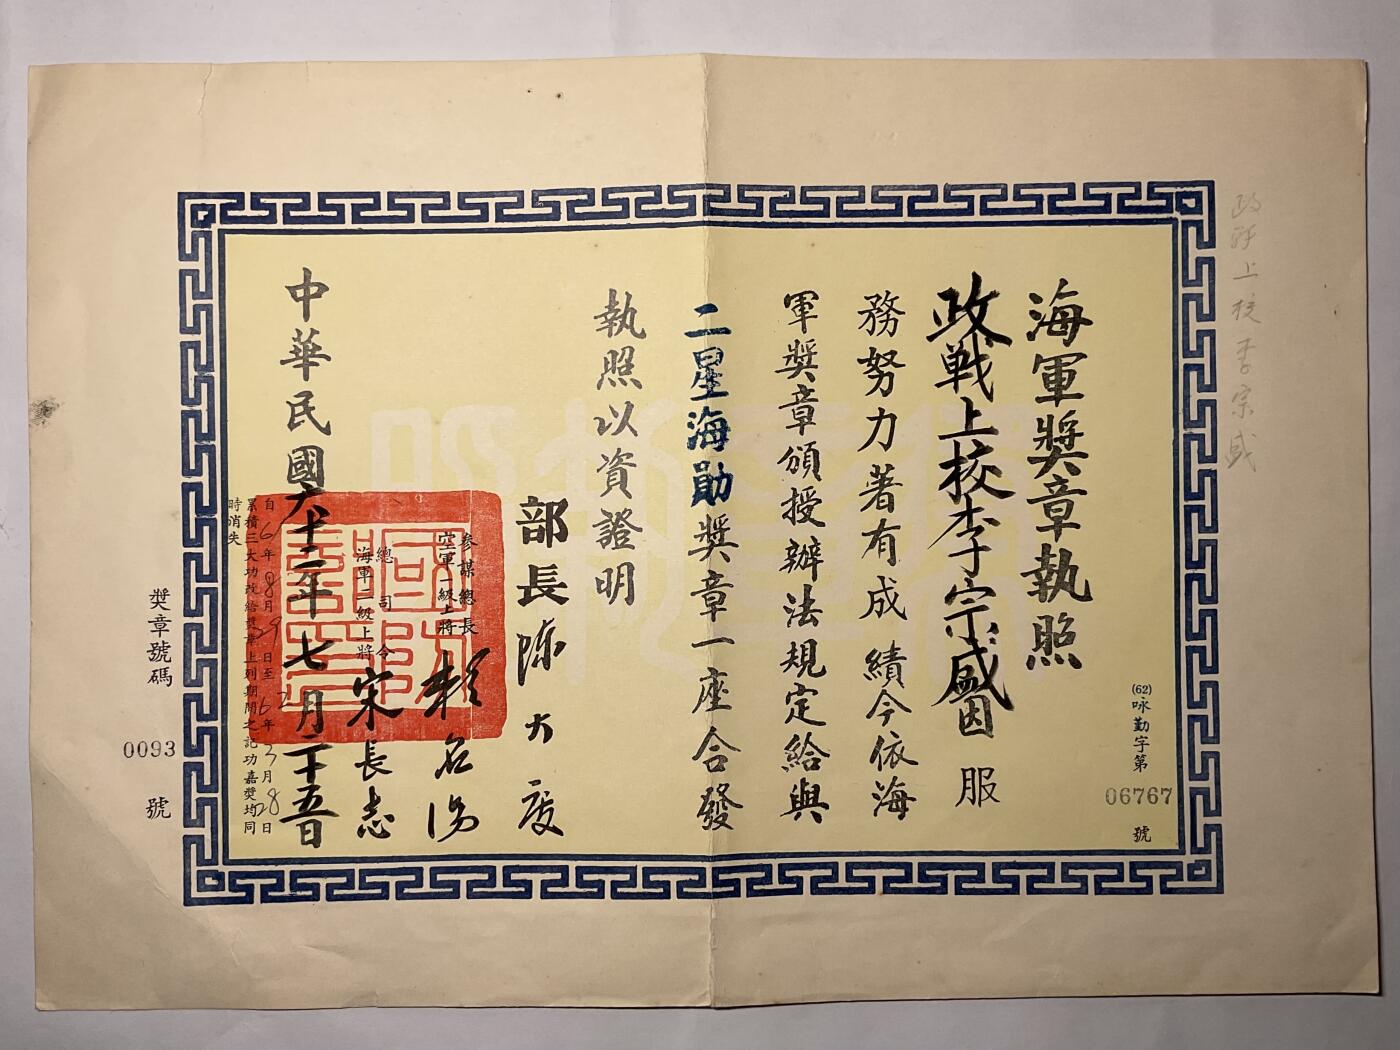 政戰上校李宗盛
海軍獎章執照
(62)咏勤字第 06767 號
政戰上校李宗盛因服
務努力著有成績今依海
軍獎章頒授辦法規定給與
二星海勛獎章一座合發
執照以資證明
部長陳大慶
參謀總長
空軍一級上將賴名湯
總司令
海軍二級上將宋長志
中華民國六十二年七月二十五日
自 6年8月29日至 6年3月28日
累積三大功改給獎章上列期間之記功嘉獎均同
時消失
獎章號碼 0093 號